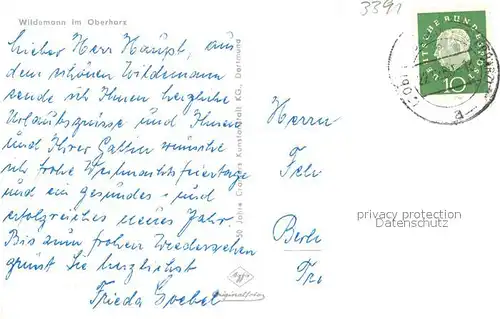 3391
Wildemann im Oberharz
DEUTSCHE BUNDESPOST
10
Lieber Herr Haupt, aus
dem schönen Wildemann
sende ich Ihnen herzliche
Urlaubsgrüsse und Ihnen
und Ihrer Gattin wünsche
ich frohe Weihnachtsfeiertage
und ein gesundes und
erfolgreiches neues Jahr.
Bis zum frohen Wiedersehen
grüsst Sie herzlichst
Frieda Goebel
50 Jahre Cramers Kunstanstalt KG., Dortmund
Herrn
Berli
privacy protection
Datenschutz
Agfa
Originalfoto